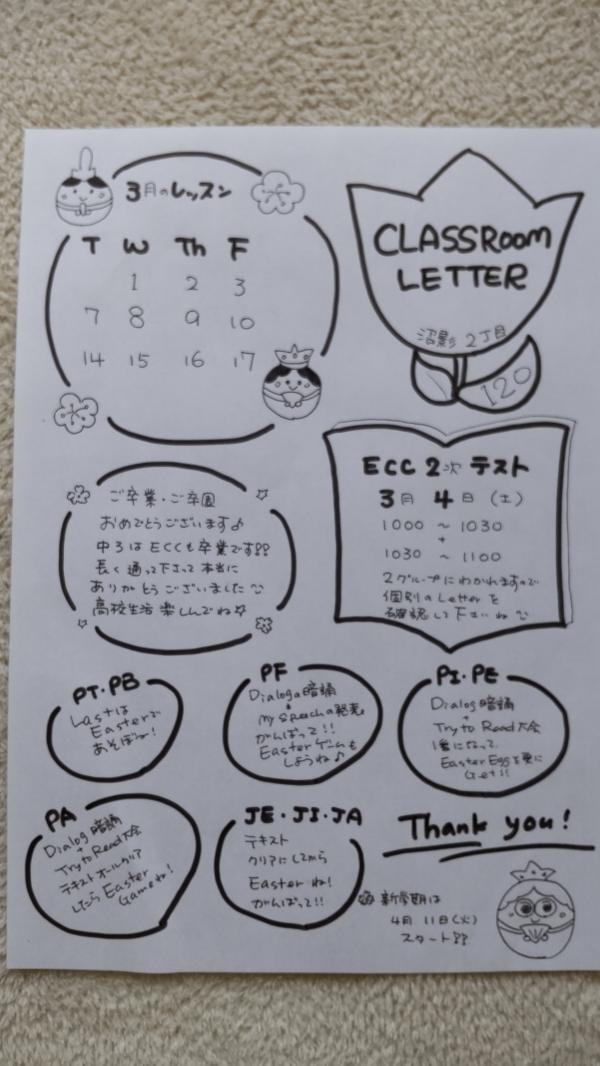 3月のレッスン
T W Th F
1 2 3
7 8 9 10
14 15 16 17
CLASSROOM
LETTER
沼影 2丁目
120
ECC 2次 テスト
3月 4日 (土)
1000 ~ 1030
+
1030 ~ 1100
2グループにわかれますので
個別のLetterを
確認して下さいね
ご卒業・ご卒園
おめでとうございます♪
中3は ECCも卒業です!!
長く通って下さって本当に
ありがとうございました
高校生活 楽しんでね☆
PT・PB
Lastは
Easterで
あそぼね!
PF
Dialogの暗誦
My Speechの発表
がんばって!!
Easterゲームも
しようね♪
PI・PE
Dialog暗誦
+
Try to Read 大会
1番になって
Easter Eggを更に
Get!!
PA
Dialog 暗誦
+
Try to Read大会
テキストオールクリア
したら Easter
Gameね!
JE・JI・JA
テキスト
クリアにしてから
Easter ね!
がんばって!!
Thank you!
新学期は
4月 11日(火)
スタート!!